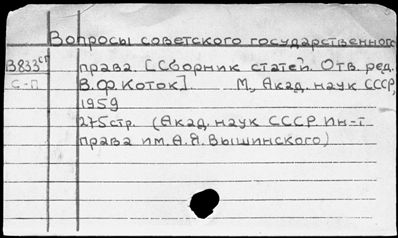 Вопросы советского государственного
В833сп права. [Сборник статей. Отв. ред.
С-П В.Ф. Коток]. М., Акад. наук СССР,
1959
275 стр. (Акад. наук СССР. Ин-т
права им. А.Я. Вышинского)